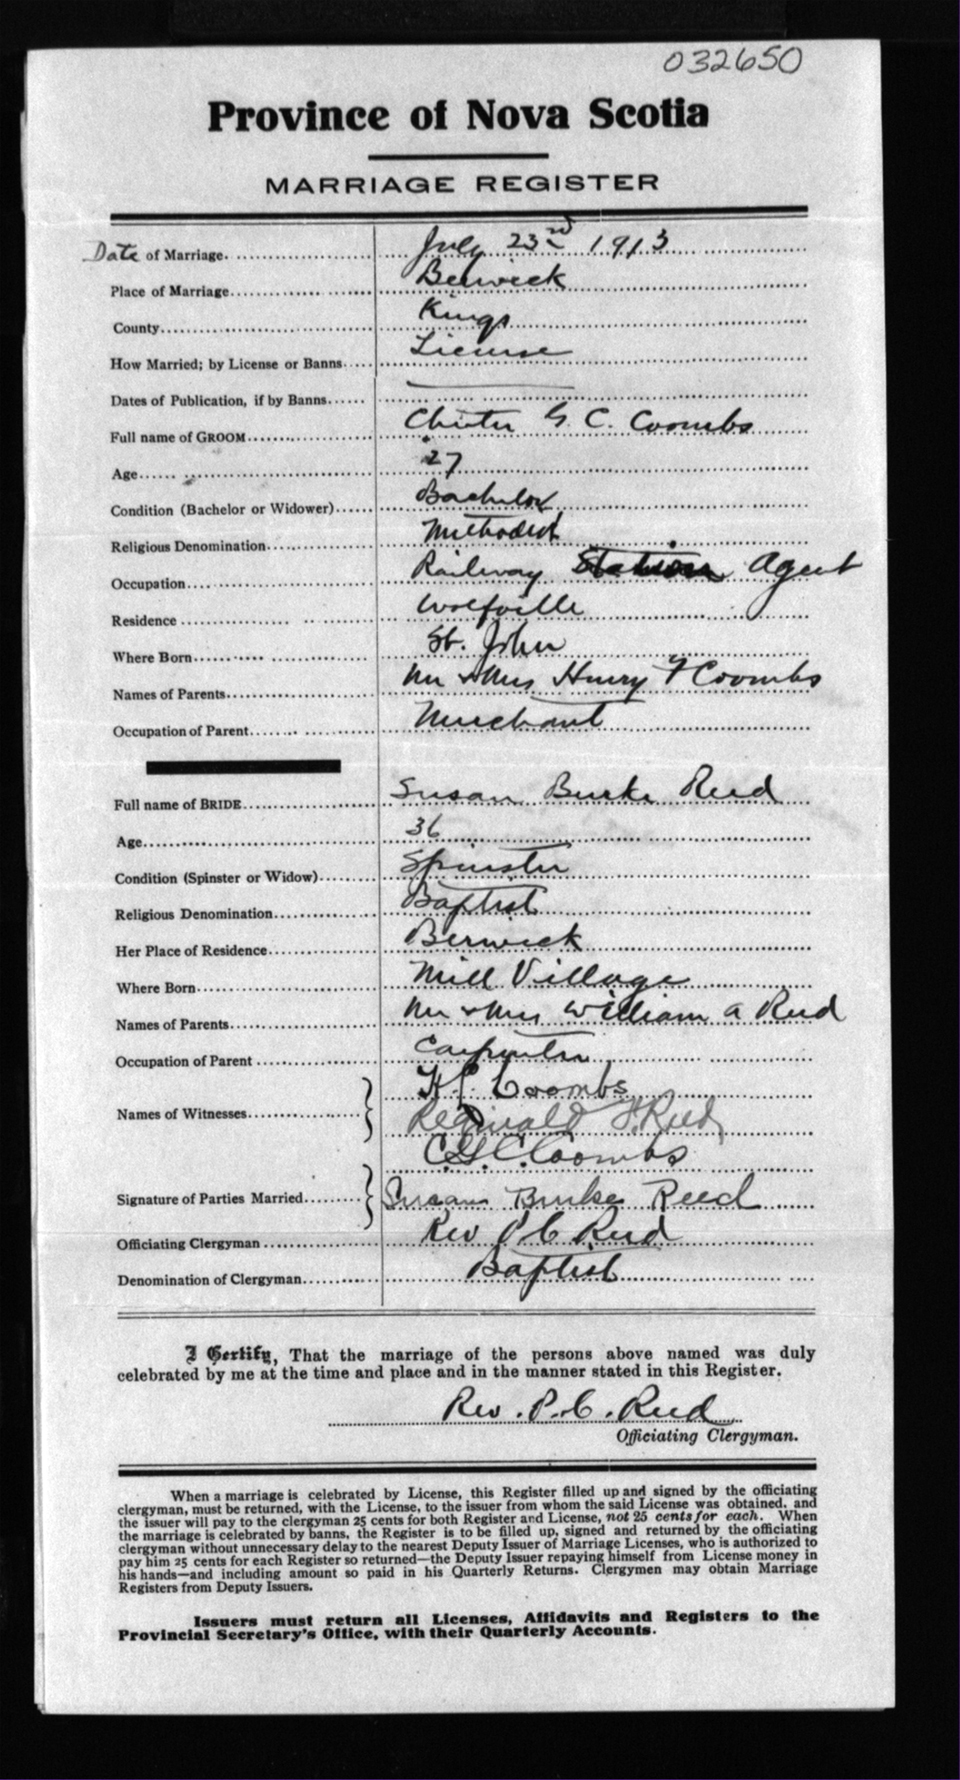 032650
Province of Nova Scotia
MARRIAGE REGISTER
Date of Marriage. July 23rd 1913
Place of Marriage Berwick
County Kings
How Married; by License or Banns License
Dates of Publication, if by Banns
Full name of GROOM Chester G. C. Coombs
Age 27
Condition (Bachelor or Widower) Bachelor
Religious Denomination Methodist
Occupation Railway Station Agent
Residence Wolfville
Where Born St. John
Names of Parents Mr & Mrs Henry F Coombs
Occupation of Parent Merchant
Full name of BRIDE Susan Burke Reed
Age 36
Condition (Spinster or Widow) Spinster
Religious Denomination Baptist
Her Place of Residence Berwick
Where Born Mill Village
Names of Parents Mr & Mrs William A Reed
Occupation of Parent Carpenter
Coombs
Names of Witnesses
Reginald F. Reed
C. G. C. Coombs
Signature of Parties Married Susan Burke Reed
Officiating Clergyman Rev P C Reed
Denomination of Clergyman Baptist
I Certify, That the marriage of the persons above named was duly
celebrated by me at the time and place and in the manner stated in this Register.
Rev. P. C. Reed
Officiating Clergyman.
When a marriage is celebrated by License, this Register filled up and signed by the officiating
clergyman, must be returned, with the License, to the issuer from whom the said License was obtained, and
the issuer will pay to the clergyman 25 cents for both Register and License, not 25 cents for each. When
the marriage is celebrated by banns, the Register is to be filled up, signed and returned by the officiating
clergyman without unnecessary delay to the nearest Deputy Issuer of Marriage Licenses, who is authorized to
pay him 25 cents for each Register so returned—the Deputy Issuer repaying himself from License money in
his hands—and including amount so paid in his Quarterly Returns. Clergymen may obtain Marriage
Registers from Deputy Issuers.
Issuers must return all Licenses, Affidavits and Registers to the
Provincial Secretary's Office, with their Quarterly Accounts.